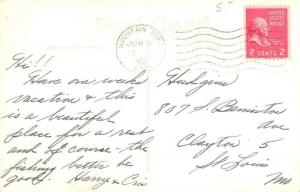 5.-
MOUNTAIN
JUN
UNITED STATES
POSTAGE
2 CENTS 2
Hi!!
Have one weeks
vacation & this
is a beautiful
place for a rest
and of course - the
fishing better be
good. Harry & Cris
Hudgins
807 S. Bemiston
Ave
Clayton 5
St Louis
Mo